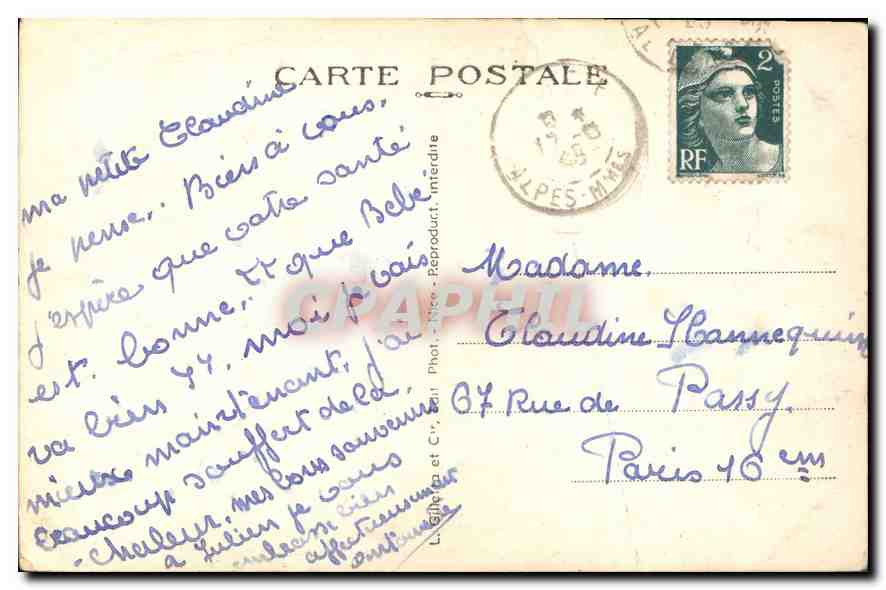 CARTE POSTALE
ma petite Claudine
je pense. Bien à vous.
j'espère que votre santé
est. bonne, et que Bebé
va bien, moi je vais
mieux maintenant, j'ai
beaucoup souffert de la
chaleur, mes bons souvenirs
a Julien je vous
embrasse bien
affectueusement
L. Gilletta et Cie, Edit. Phot. - Nice - Reproduct. interdite
CPAPHIL
ALPES-Mmes
2
POSTES
RF
Madame.
Claudine Hannequin
67 Rue de Passy.
Paris 16 em